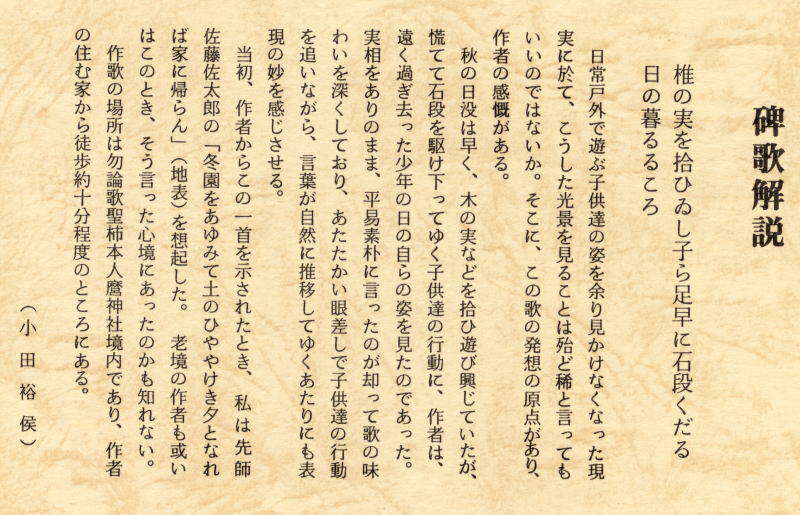 碑歌解説
椎の実を拾ひゐし子ら足早に石段くだる
日の暮るるころ
日常戸外で遊ぶ子供達の姿を余り見かけなくなった現
実に於て、こうした光景を見ることは殆ど稀と言っても
いいのではないか。そこに、この歌の発想の原点があり、
作者の感慨がある。
秋の日没は早く、木の実などを拾ひ遊び興じていたが、
慌てて石段を駆け下ってゆく子供達の行動に、作者は、
遠く過ぎ去った少年の日の自らの姿を見たのであった。
実相をありのまま、平易素朴に言ったのが却って歌の味
わいを深くしており、あたたかい眼差しで子供達の行動
を追いながら、言葉が自然に推移してゆくあたりにも表
現の妙を感じさせる。
当初、作者からこの一首を示されたとき、私は先師
佐藤佐太郎の「冬園をあゆみて土のひややけき夕となれ
ば家に帰らん」(地表)を想起した。 老境の作者も或い
はこのとき、そう言った心境にあったのかも知れない。
作歌の場所は勿論歌聖柿本人麿神社境内であり、作者
の住む家から徒歩約十分程度のところにある。
(小田裕侯)